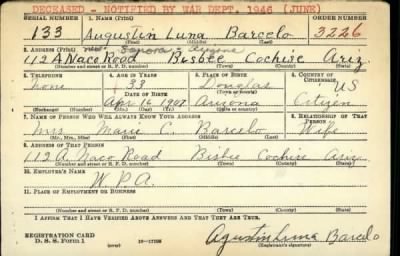 DECEASED - NOTIFIED BY WAR DEPT. 1946 (JUNE)
SERIAL NUMBER 1. NAME (Print) ORDER NUMBER
133 Augustin Luna Barcelo 3226
(First) (Middle) (Last)
2. ADDRESS (Print)
112 A Naco Road Bisbee Cochise Ariz.
(Number and street or R. F. D. number) (Town) (County) (State)
3. TELEPHONE 4. AGE IN YEARS 5. PLACE OF BIRTH 6. COUNTRY OF CITIZENSHIP
none 33 Douglas US
DATE OF BIRTH (Town or county)
Apr 16 1907 Arizona Citizen
(Exchange) (Number) (Mo.) (Day) (Yr.) (State or country)
7. NAME OF PERSON WHO WILL ALWAYS KNOW YOUR ADDRESS 8. RELATIONSHIP OF THAT PERSON
Mrs. Marie C. Barcelo Wife
(Mr., Mrs., Miss) (First) (Middle) (Last)
9. ADDRESS OF THAT PERSON
112 A. Naco Road Bisbee Cochise Ariz
(Number and street or R. F. D. number) (Town) (County) (State)
10. EMPLOYER'S NAME
W.P.A.
11. PLACE OF EMPLOYMENT OR BUSINESS
(Number and street or R. F. D. number) (Town) (County) (State)
I AFFIRM THAT I HAVE VERIFIED ABOVE ANSWERS AND THAT THEY ARE TRUE.
REGISTRATION CARD
D. S. S. Form 1 Agustin Luna Barcelo
(Registrant's signature)